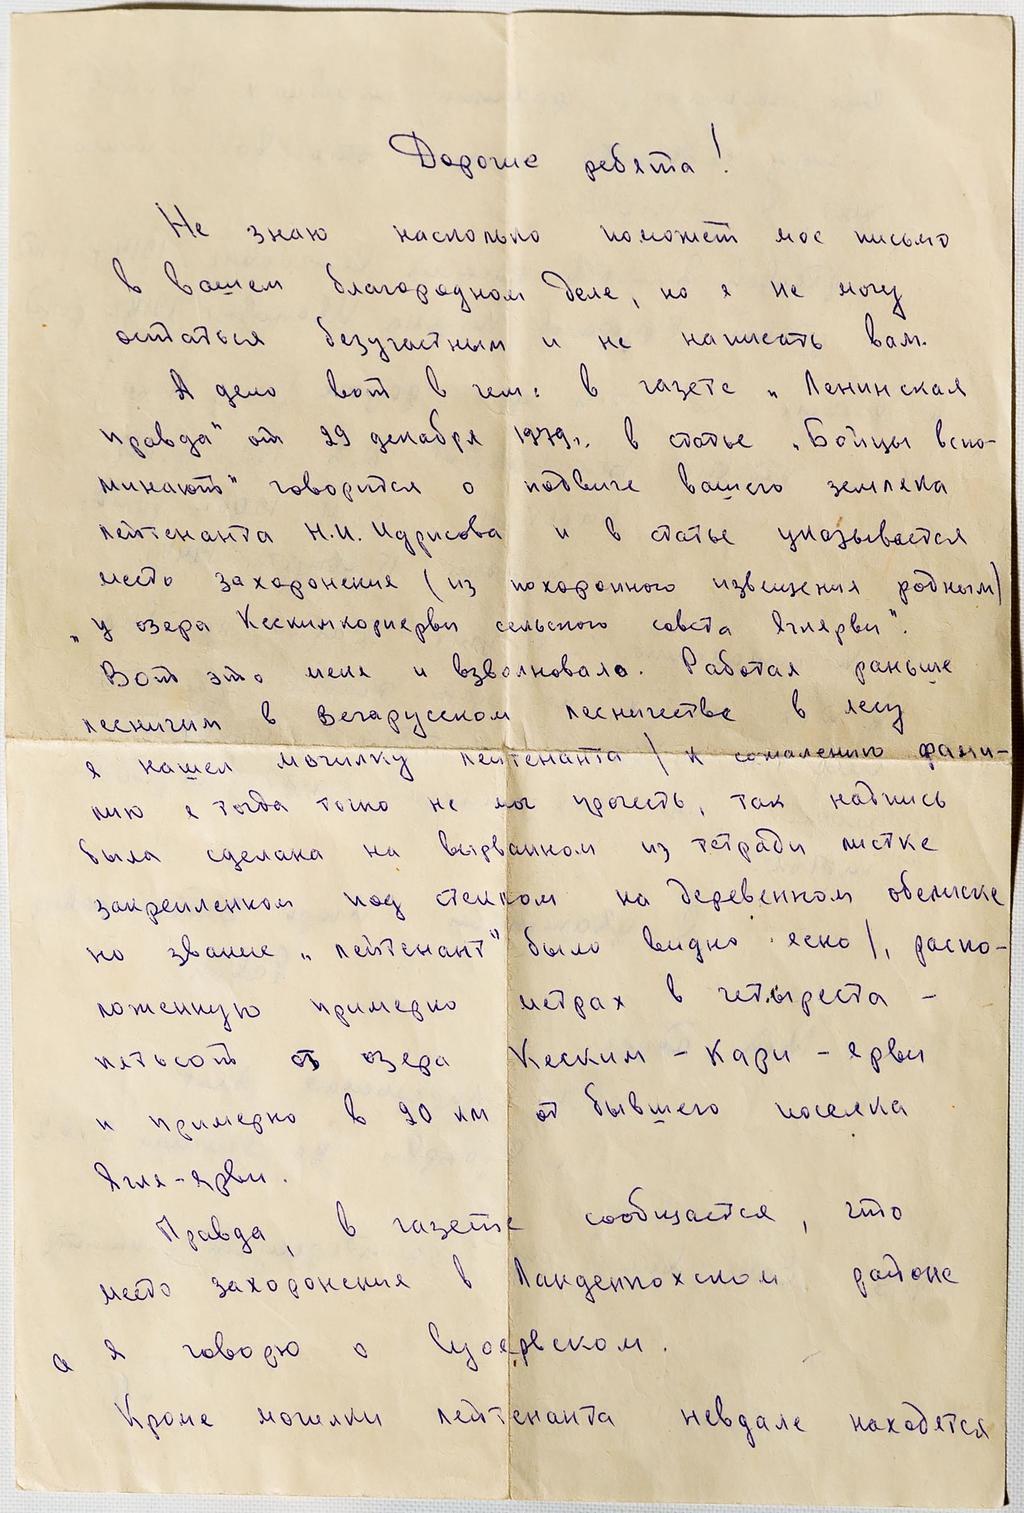 Дорогие ребята!
Не знаю насколько поможет мое письмо
в вашем благородном деле, но я не могу
остаться безучастным и не написать вам.
А дело вот в чем: в газете „Ленинская
правда" от 29 декабря 1979г. в статье „Бойцы вспо-
минают" говорится о подвиге вашего земляка
лейтенанта Н.И. Идрисова и в статье указывается
место захоронения (из похоронного извещения родным)
„у озера Кескимкориярви сельского совета Яглярви".
Вот это меня и взволновало. Работая раньше
лесничим в Вегарусском лесничестве в лесу
я нашел могилку лейтенанта / к сожалению фами-
лию я тогда точно не мог прочесть, так надпись
была сделана на вырванном из тетради листке
закрепленном под стеклом на деревенном обелиске
но звание „лейтенант" было видно ясно/, распо-
ложенную примерно метрах в четыреста -
пятьсот от озера Кеским - Кари - ярви
и примерно в 20 км от бывшего поселка
Ягля-ярви.
Правда, в газете сообщается, что
место захоронения в Лахденпохском районе
а я говорю о Суоярвском.
Кроме могилки лейтенанта невдале находятся